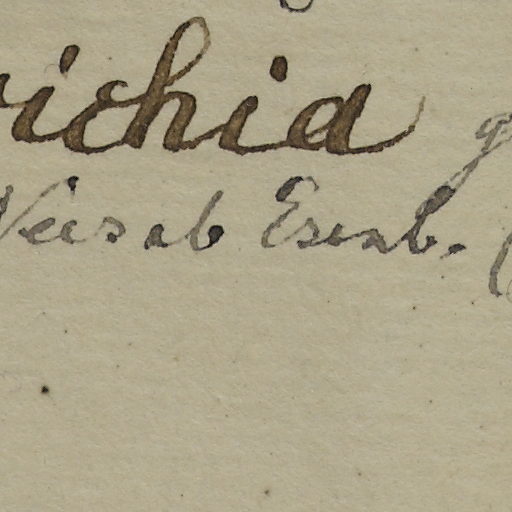 richia g
Nees ab Esenb. (